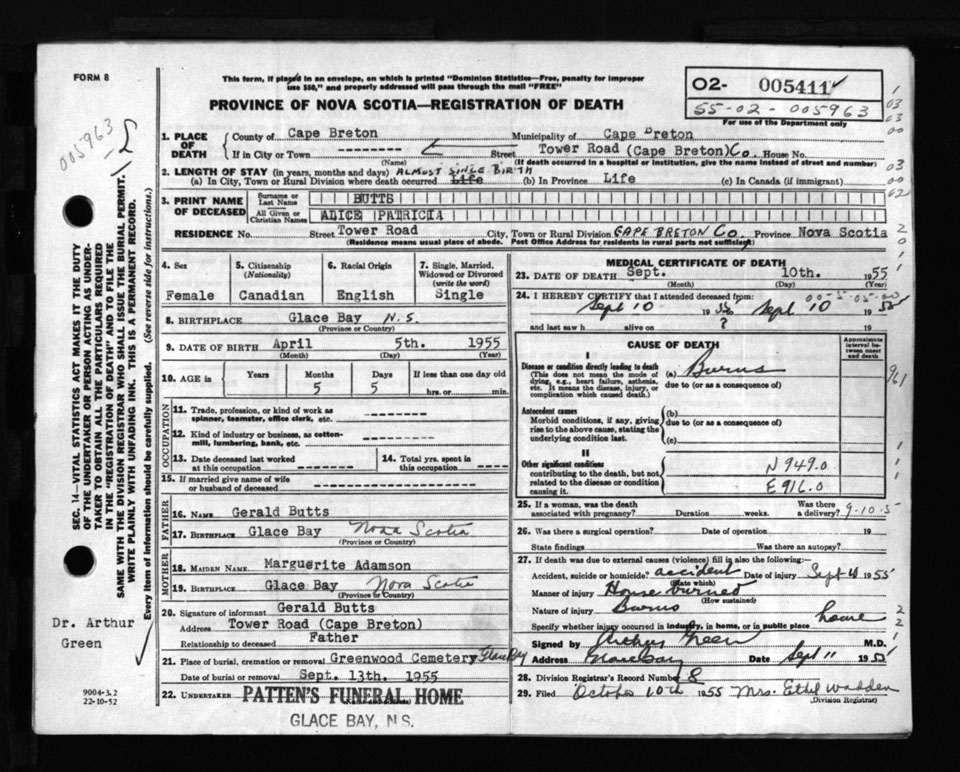 FORM 8
This form, if placed in an envelope, on which is printed "Dominion Statistics—Free, penalty for improper
use $50," and properly addressed will pass through the mail "FREE"
PROVINCE OF NOVA SCOTIA—REGISTRATION OF DEATH
02- 005411
55-02-005963
For use of the Department only
005963
1. PLACE OF DEATH
County of Cape Breton Municipality of Cape Breton
If in City or Town --------- Street Tower Road (Cape Breton) Co. House No.
(Name) (If death occurred in a hospital or institution, give the name instead of street and number)
2. LENGTH OF STAY (in years, months and days) ALMOST SINCE BIRTH
(a) In City, Town or Rural Division where death occurred Life (b) In Province Life (c) In Canada (if immigrant)
3. PRINT NAME OF DECEASED
Surname or Last Name BUTTS
All Given or Christian Names ALICE PATRICIA
RESIDENCE No. Street Tower Road City, Town or Rural Division CAPE BRETON Co. Province Nova Scotia
(Residence means usual place of abode. Post Office Address for residents in rural parts not sufficient)
4. Sex
Female
5. Citizenship (Nationality)
Canadian
6. Racial Origin
English
7. Single, Married, Widowed or Divorced (write the word)
Single
8. BIRTHPLACE Glace Bay N.S.
(Province or Country)
9. DATE OF BIRTH April 5th. 1955
(Month) (Day) (Year)
10. AGE in
Years Months Days If less than one day old
5 5 hrs. or min.
OCCUPATION
11. Trade, profession, or kind of work as
spinner, teamster, office clerk, etc. --------
12. Kind of industry or business, as cotton-
mill, lumbering, bank, etc. ---------
13. Date deceased last worked
at this occupation --------
14. Total yrs. spent in
this occupation ------
15. If married give name of wife
or husband of deceased ---------
FATHER
16. NAME Gerald Butts
17. BIRTHPLACE Glace Bay Nova Scotia
(Province or Country)
MOTHER
18. MAIDEN NAME Marguerite Adamson
19. BIRTHPLACE Glace Bay Nova Scotia
(Province or Country)
20. Signature of informant Gerald Butts
Address Tower Road (Cape Breton)
Relationship to deceased Father
21. Place of burial, cremation or removal Greenwood Cemetery Glace Bay
Date of burial or removal Sept. 13th. 1955
22. UNDERTAKER PATTEN'S FUNERAL HOME
GLACE BAY, N.S.
MEDICAL CERTIFICATE OF DEATH
23. DATE OF DEATH Sept. 10th. 1955
(Month) (Day)
24. I HEREBY CERTIFY that I attended deceased from:
Sept 10 1955 to Sept 10 1955
and last saw h alive on ? 19
CAUSE OF DEATH
Approximate interval between onset and death
I
Disease or condition directly leading to death
(This does not mean the mode of
dying, e.g., heart failure, asthenia,
etc. It means the disease, injury, or
complication which caused death.)
(a) Burns
due to (or as a consequence of)
Antecedent causes
Morbid conditions, if any, giving
rise to the above cause, stating the
underlying condition last.
(b)
due to (or as a consequence of)
(c)
II
Other significant conditions
contributing to the death, but not
related to the disease or condition
causing it.
N 949.0
E 916.0
25. If a woman, was the death
associated with pregnancy? Duration weeks. Was there a delivery? 9-10-5
26. Was there a surgical operation? Date of operation 19
State findings Was there an autopsy?
27. If death was due to external causes (violence) fill in also the following:
Accident, suicide or homicide? accident Date of injury Sept 10 1955
(State which)
Manner of injury House burned
(How sustained)
Nature of injury Burns
Specify whether injury occurred in industry, in home, or in public place home
Signed by Arthur Green M.D.
Address Glace Bay Date Sept 11 1955
28. Division Registrar's Record Number 8
29. Filed October 10th 1955 Mrs. Ethel Wadden
(Division Registrar)
SEC. 14—VITAL STATISTICS ACT MAKES IT THE DUTY
OF THE UNDERTAKER OR PERSON ACTING AS UNDER-
TAKER TO OBTAIN ALL THE PARTICULARS REQUIRED
IN THE "REGISTRATION OF DEATH" AND TO FILE THE
SAME WITH THE DIVISION REGISTRAR WHO SHALL ISSUE THE BURIAL PERMIT.
WRITE PLAINLY WITH UNFADING INK. THIS IS A PERMANENT RECORD.
Every item of information should be carefully supplied. (See reverse side for instructions.)
Dr. Arthur
Green
9004-3.2
22-10-52